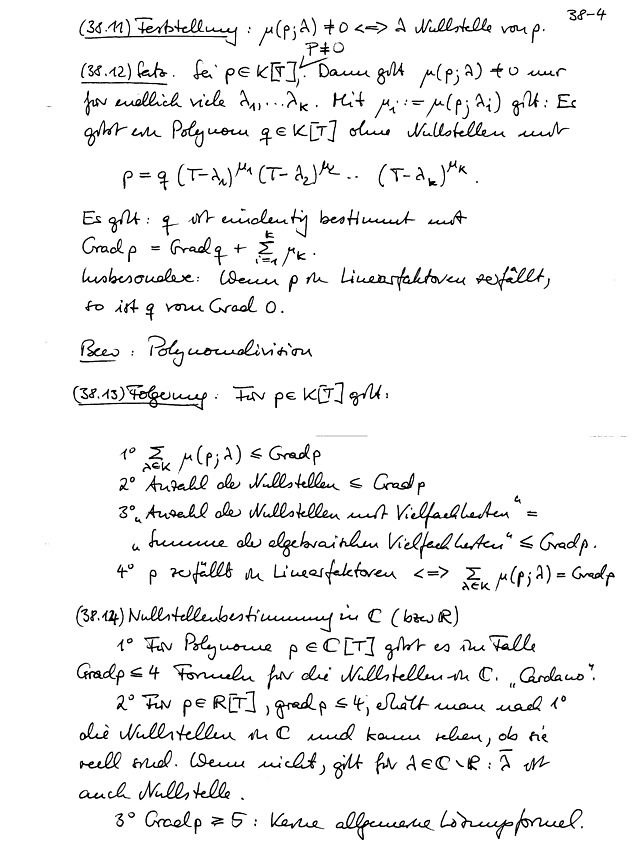 38-4
(38.11) Feststellung : μ(p;λ) ≠ 0 <=> λ Nullstelle von p.
p≠0
(38.12) Satz. Sei p ∈ K[T]. Dann gilt μ(p;λ) ≠ 0 nur
für endlich viele λ₁,...λₖ. Mit μᵢ := μ(p;λᵢ) gilt: Es
gibt ein Polynom q ∈ K[T] ohne Nullstellen mit
p = q (T-λ₁)^μ₁ (T-λ₂)^μ₂ .. (T-λₖ)^μₖ .
Es gilt: q ist eindeutig bestimmt mit
Grad p = Grad q + Σ_{i=1}^{k} μₖ.
Insbesondere: Wenn p in Linearfaktoren zerfällt,
so ist q vom Grad 0.
Bew : Polynomdivision
(38.13) Folgerung. Für p ∈ K[T] gilt:
1° Σ_{λ∈K} μ(p;λ) ≤ Grad p
2° Anzahl der Nullstellen ≤ Grad p
3° „Anzahl der Nullstellen mit Vielfachheiten“ =
„Summe der algebraischen Vielfachheiten“ ≤ Grad p.
4° p zerfällt in Linearfaktoren <=> Σ_{λ∈K} μ(p;λ) = Grad p
(38.14) Nullstellenbestimmung in ℂ (bzw ℝ)
1° Für Polynome p ∈ ℂ[T] gibt es im Falle
Grad p ≤ 4 Formeln für die Nullstellen in ℂ. „Cardano“.
2° Für p ∈ ℝ[T], grad p ≤ 4, erhält man nach 1°
die Nullstellen in ℂ und kann sehen, ob sie
reell sind. Wenn nicht, gilt für λ ∈ ℂ∖ℝ : λ̄ ist
auch Nullstelle.
3° Grad p ≥ 5 : Keine allgemeine Lösungsformel.